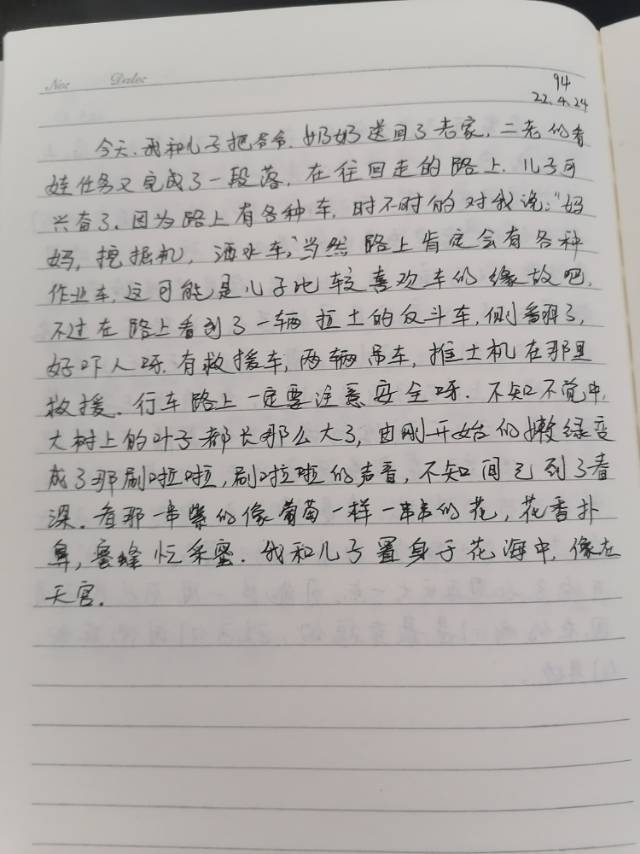 No: Date:
94
22.4.24
今天,我和儿子把爷爷、奶奶送回了老家,二老的看
娃任务又完成了一段落,在往回走的路上,儿子可
兴奋了。因为路上有各种车,时不时的对我说:"妈
妈,挖掘机,洒水车,"当然路上肯定会有各种
作业车,这可能是儿子比较喜欢车的缘故吧,
不过在路上看到了一辆拉土的反斗车,侧翻了,
好吓人呀.有救援车,两辆吊车,推土机在那里
救援.行车路上一定要注意安全呀.不知不觉中,
大树上的叶子都长那么大了,由刚开始的嫩绿变
成了那刷啦啦,刷啦啦的声音,不知间已到了春
深.看那一串紫的像葡萄一样一串串的花,花香扑
鼻,蜜蜂忙采蜜.我和儿子置身于花海中,像在
天宫.